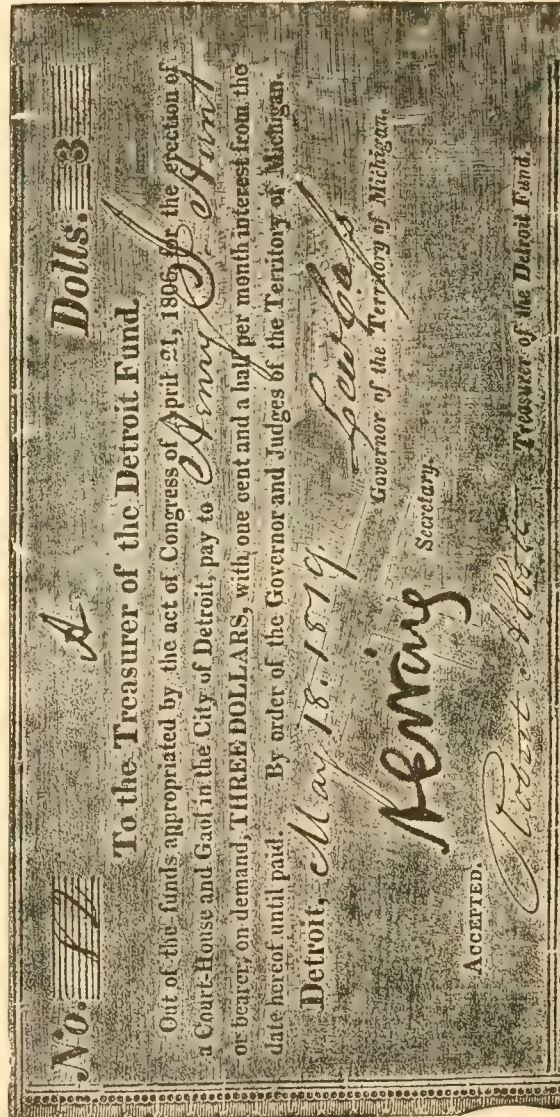 No. A Dolls. 3
To the Treasurer of the Detroit Fund.
Out of the funds appropriated by the act of Congress of April 21, 1806, for the erection of
a Court-House and Gaol in the City of Detroit, pay to Henry J Hunt
or bearer, on demand, THREE DOLLARS, with one cent and a half per month interest from the
date hereof until paid. By order of the Governor and Judges of the Territory of Michigan.
Detroit, May 18. 1819. Lew Cass
Governor of the Territory of Michigan.
Secretary.
ACCEPTED.
Robert Abbott Treasurer of the Detroit Fund.